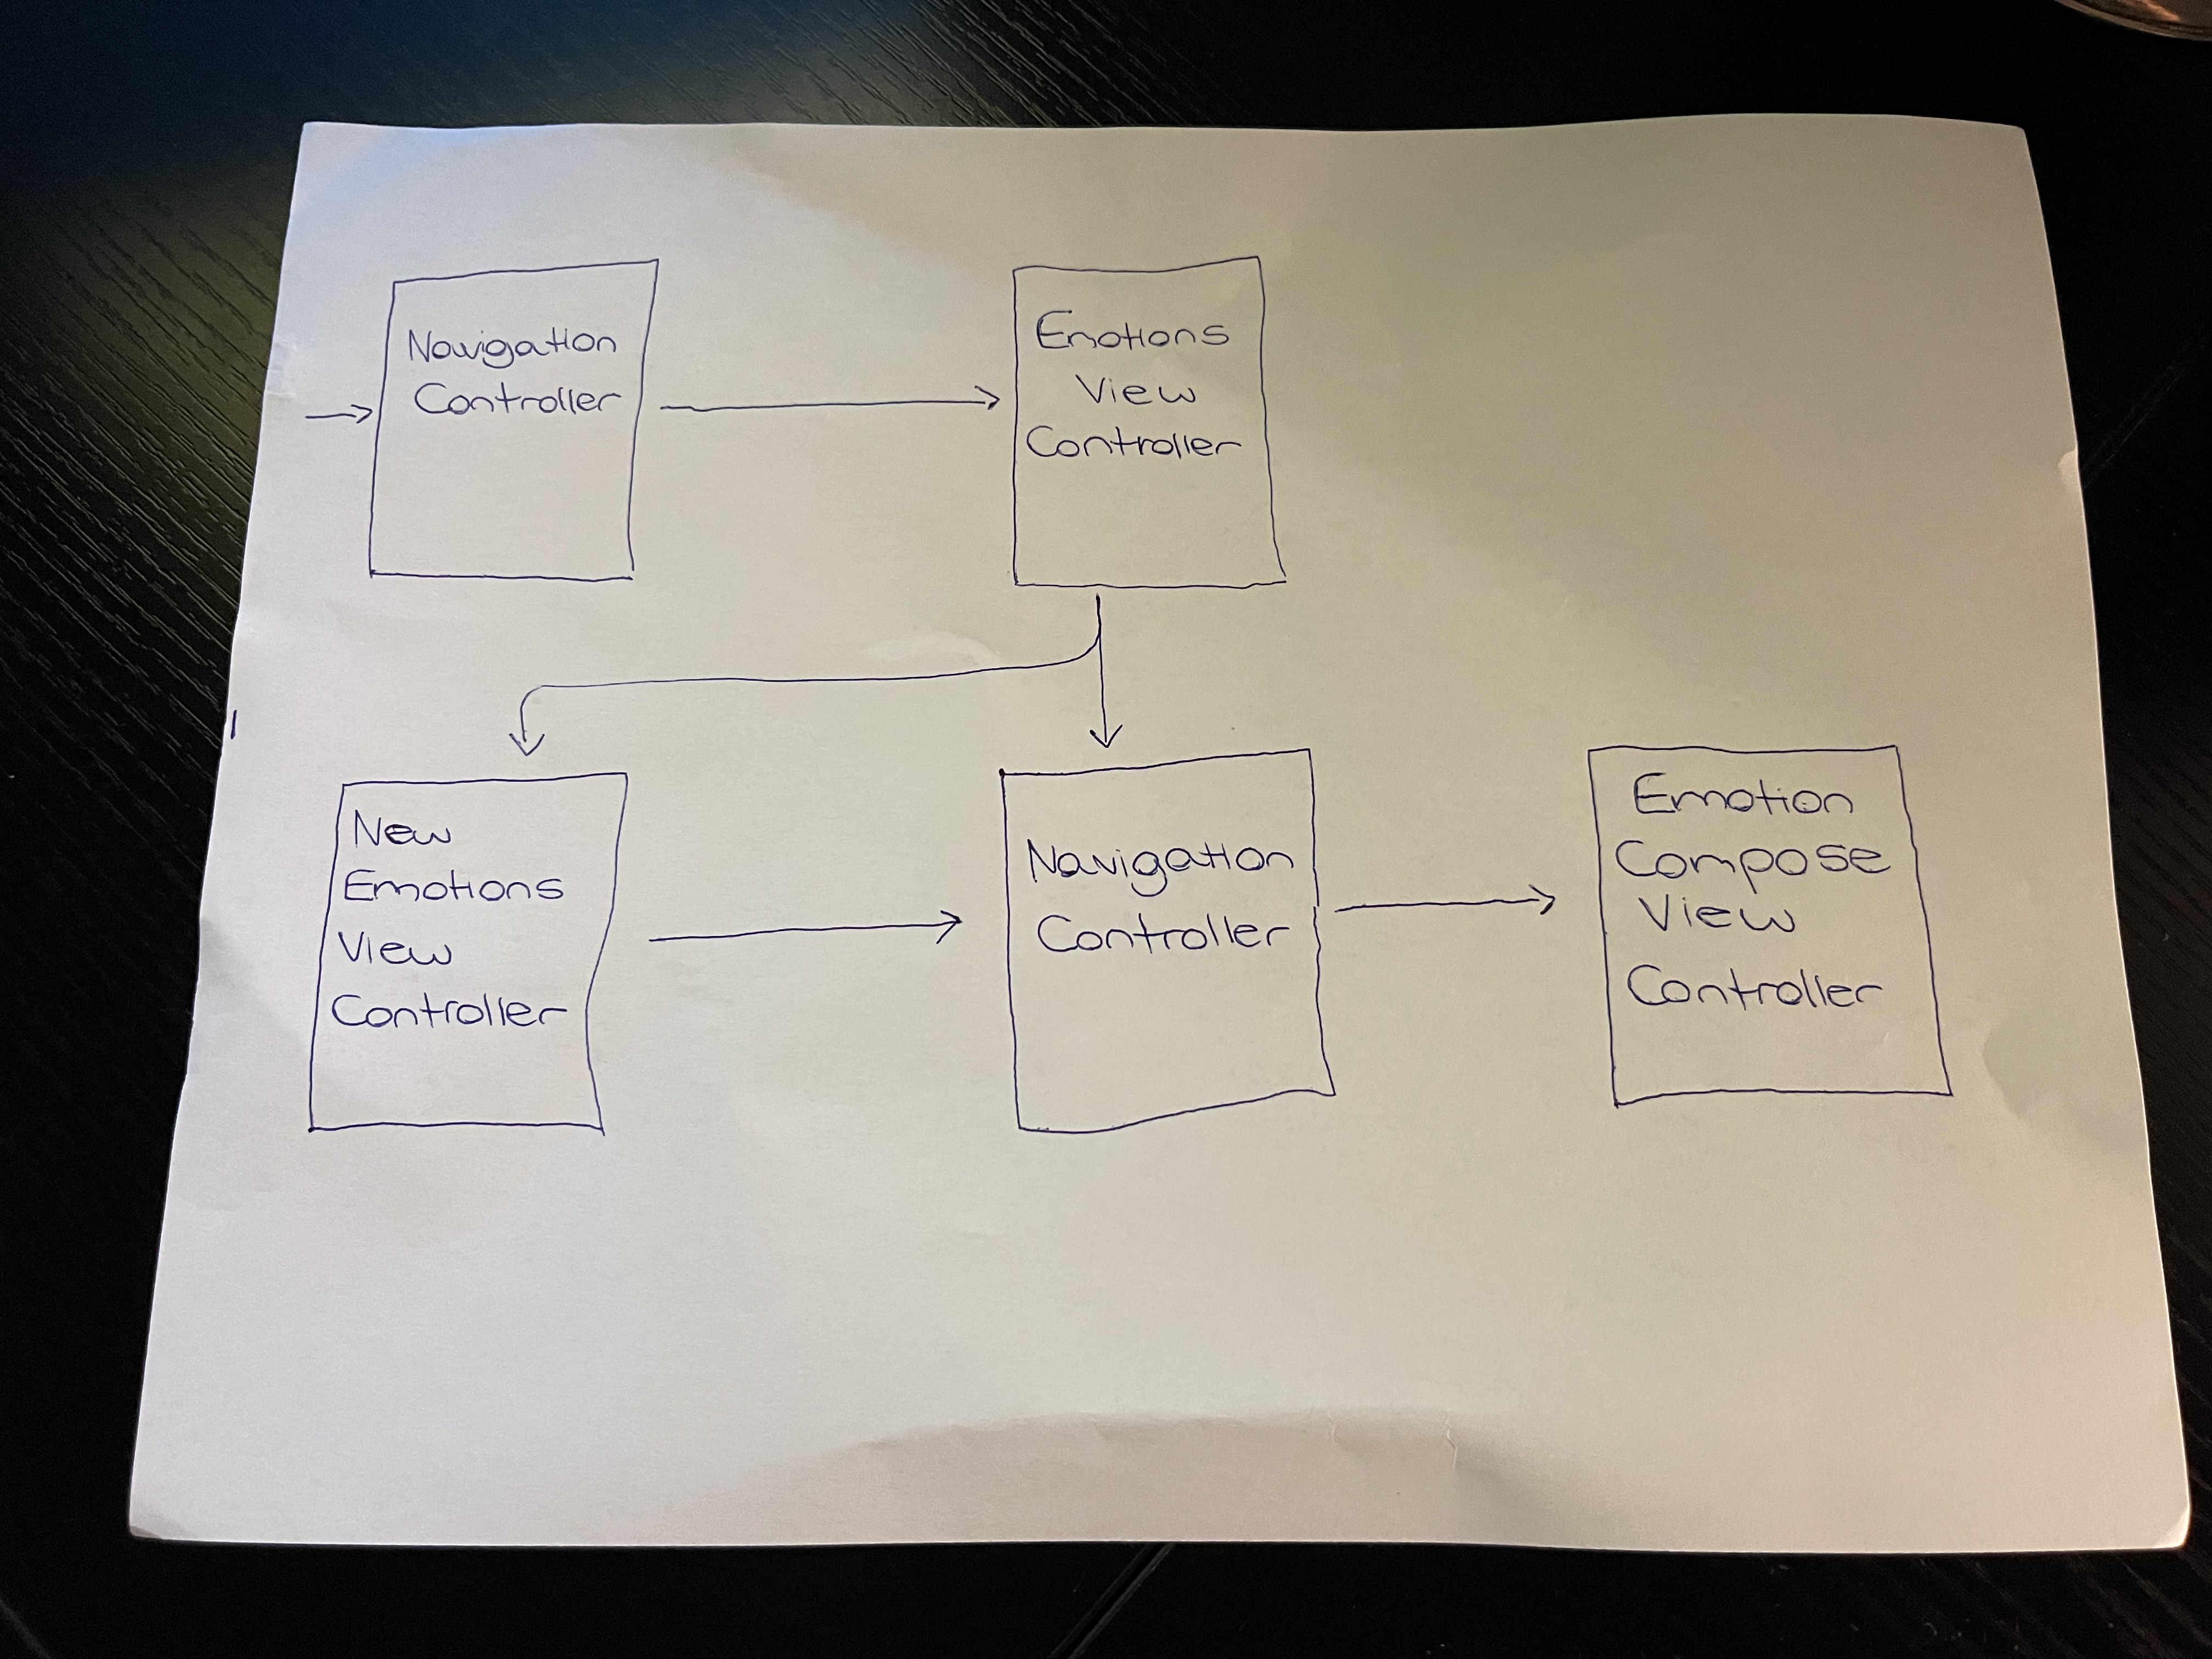 Navigation
Controller
Emotions
View
Controller
New
Emotions
View
Controller
Navigation
Controller
Emotion
Compose
View
Controller